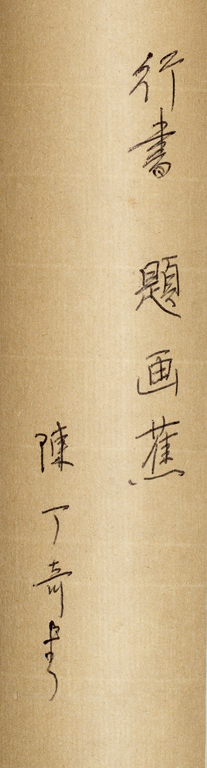 行書 題画蕉
陳丁奇書